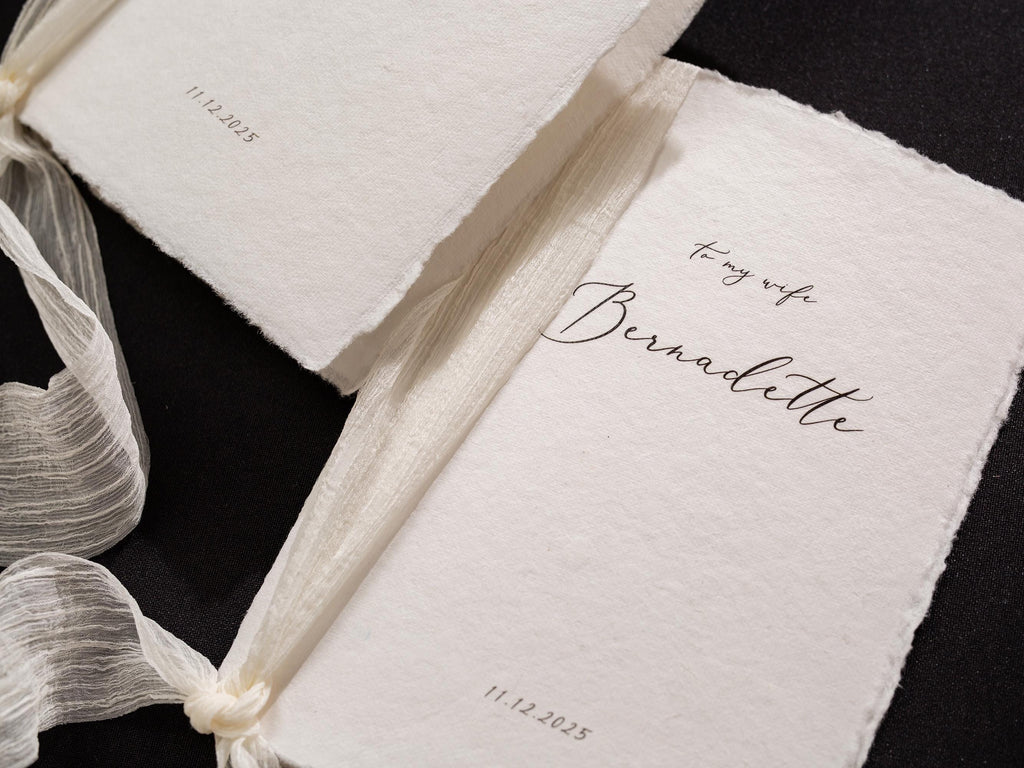 11.12.2025
to my wife
Bernadette
11.12.2025